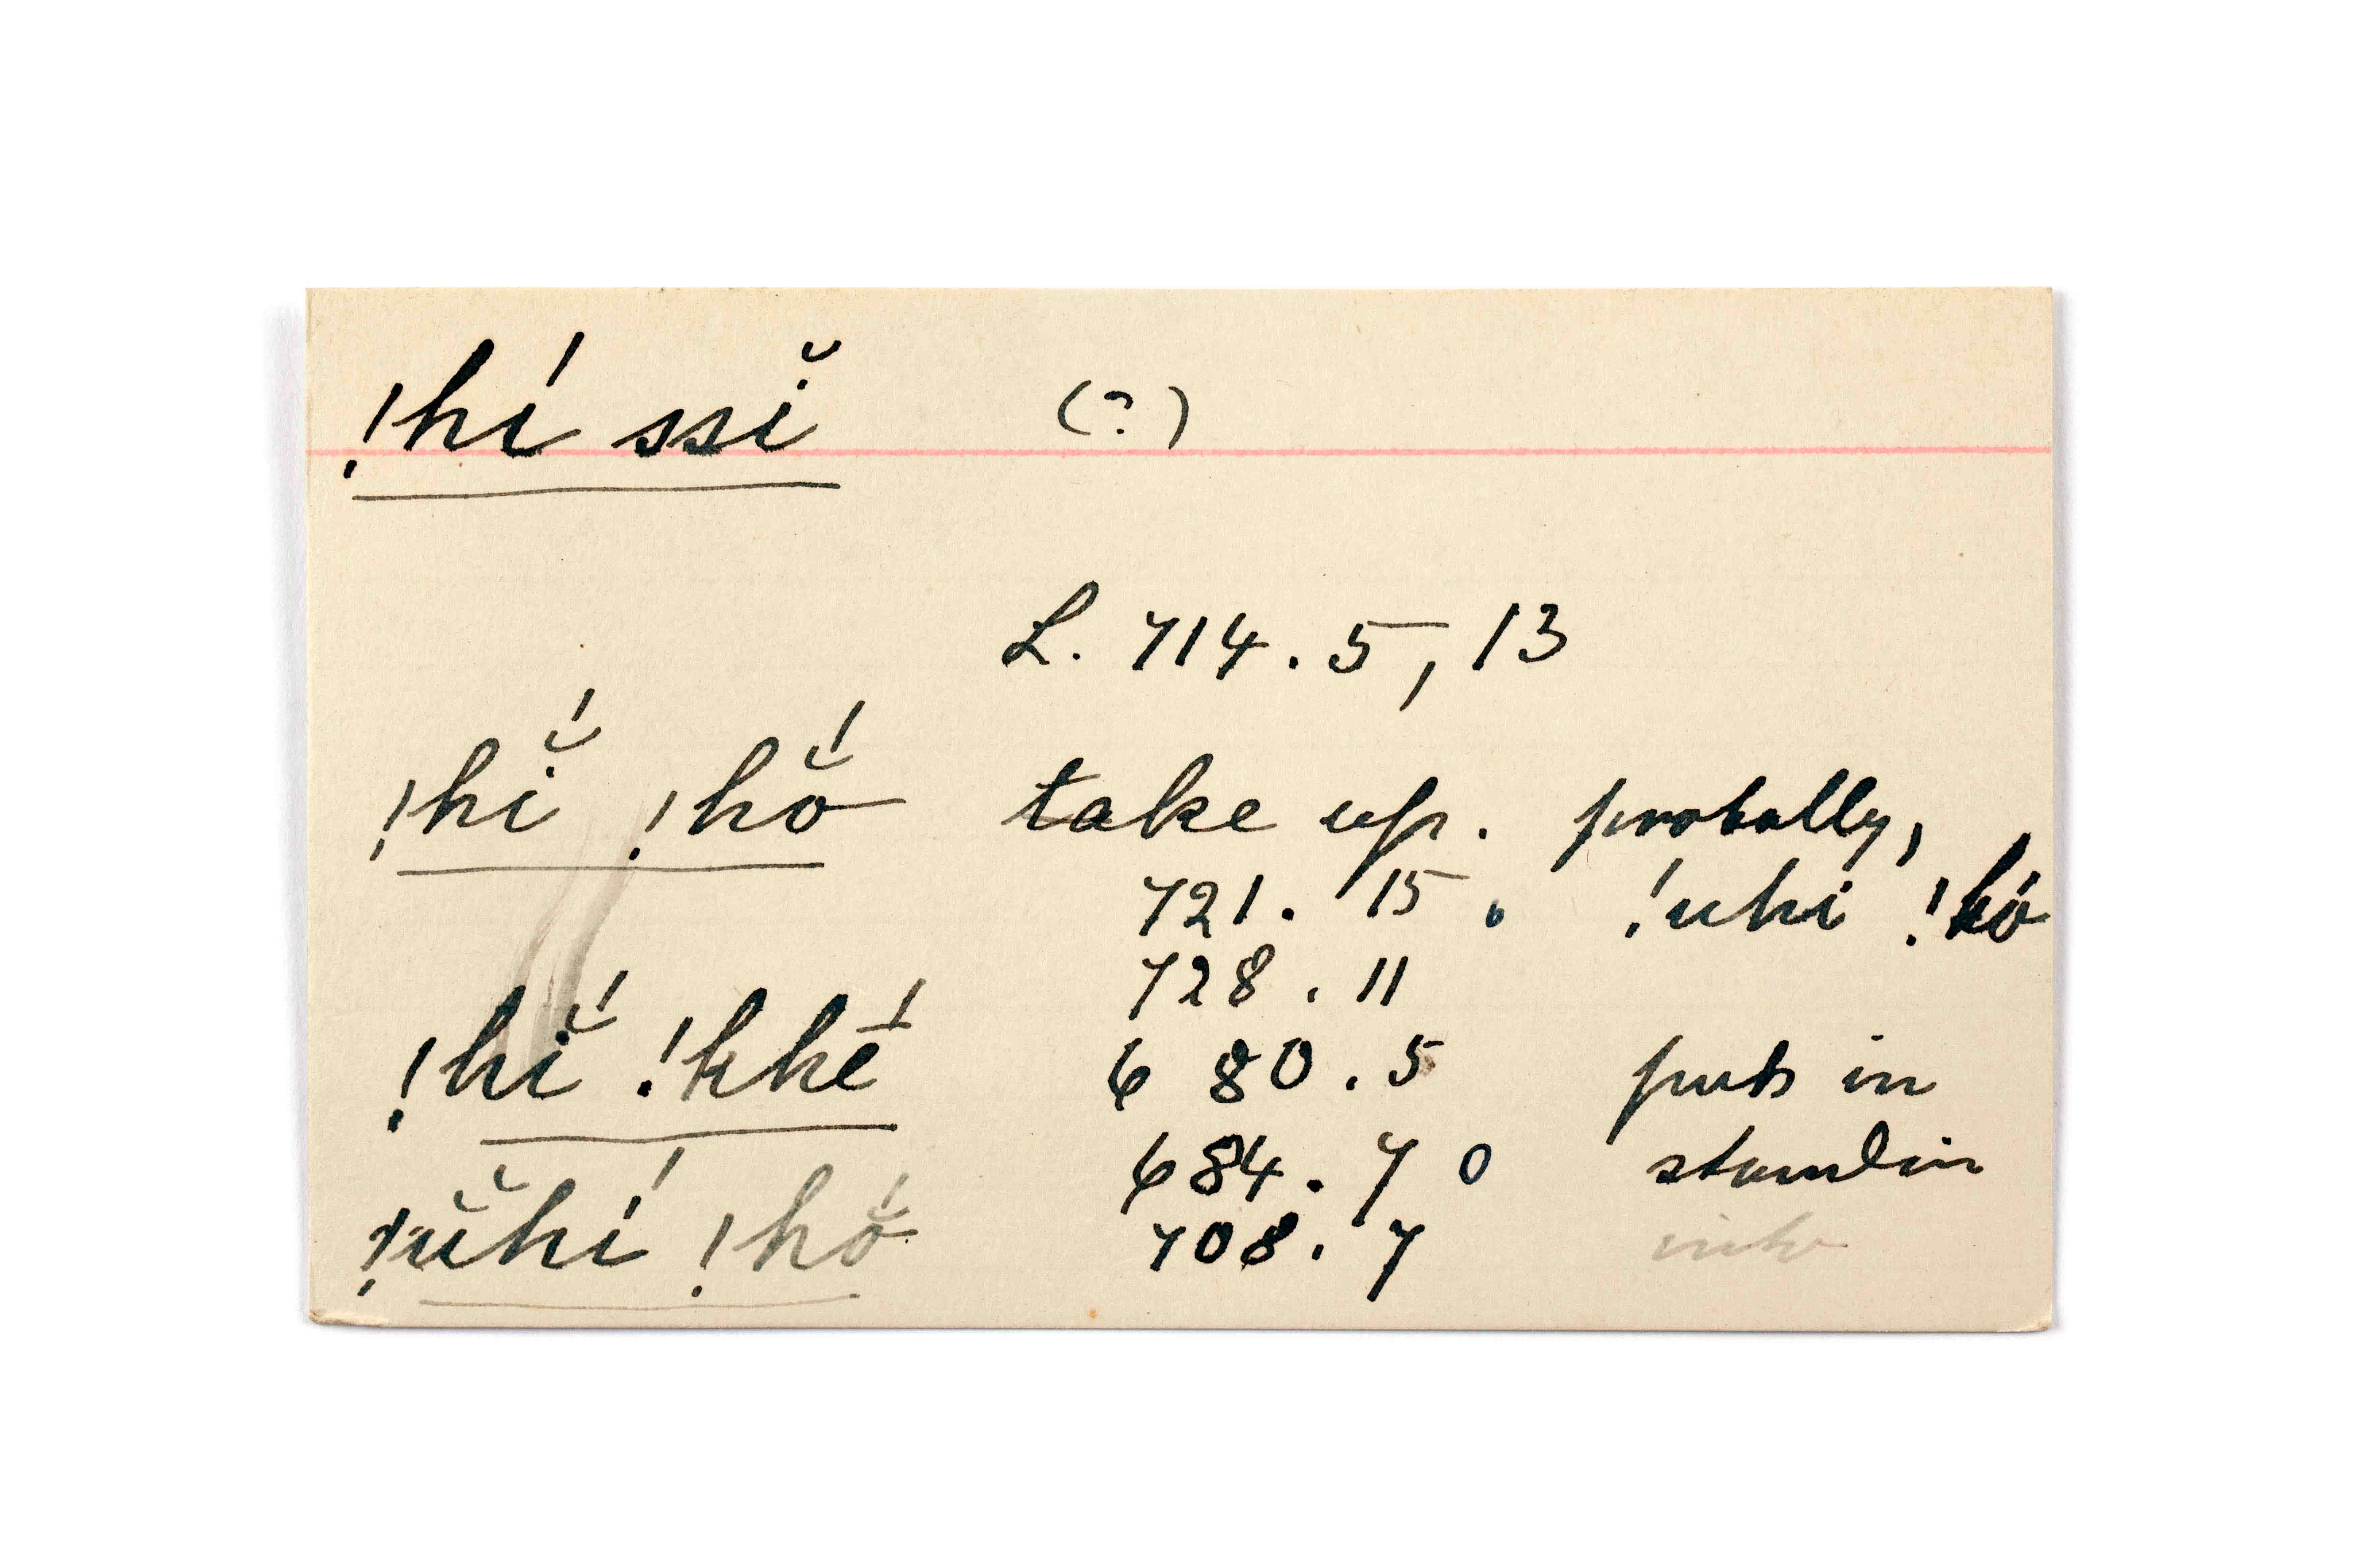 !hí ssĭ (?)
L. 714. 5, 13
!hĭ́ !hŏ́ take up. probably,
721. 15. !uhi !hó
728. 11
!hĭ́ !khé̄ 680.5 puts in
684. 7 0 stand in
!ŭhí !hŏ́ 708. 7 into